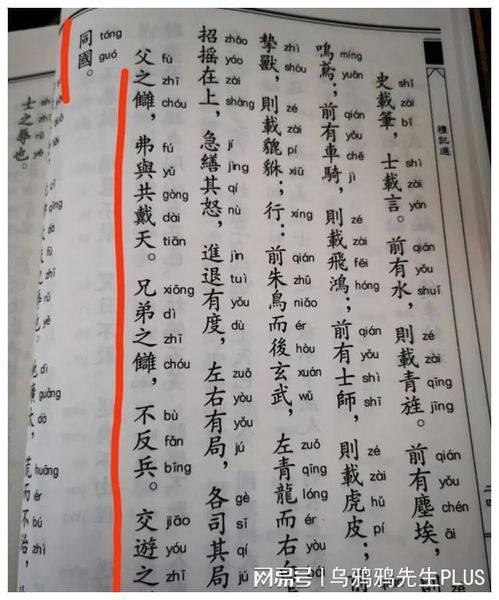 禮記選
史載筆,士載言。前有水,則載青旌。前有塵埃,
shǐ zài bǐ shì zài yán qián yǒu shuǐ zé zài qīng jīng qián yǒu chén āi
鳴鳶;前有車騎,則載飛鴻;前有士師,則載虎皮;
míng yuān qián yǒu chē jì zé zài fēi hóng qián yǒu shì shī zé zài hǔ pí
摯獸,則載貔貅;行:前朱鳥而後玄武,左青龍而右
zhì shòu zé zài pí xiū xíng qián zhū niǎo ér hòu xuán wǔ zuǒ qīng lóng ér yòu
招搖在上,急繕其怒,進退有度,左右有局,各司其局
zhāo yáo zài shàng jí jìng qí nù jìn tuì yǒu dù zuǒ yòu yǒu jú gè sī qí jú
父之讎,弗與共戴天。兄弟之讎,不反兵。交遊之
fù zhī chóu fú yǔ gòng dài tiān xiōng dì zhī chóu bù fǎn bīng jiāo yóu zhī
同國。
tóng guó
士之辱也。
地廣大,荒而不治,
dì guǎng dà huāng ér bú zhì
搜狐号|乌鸦鸦先生PLUS